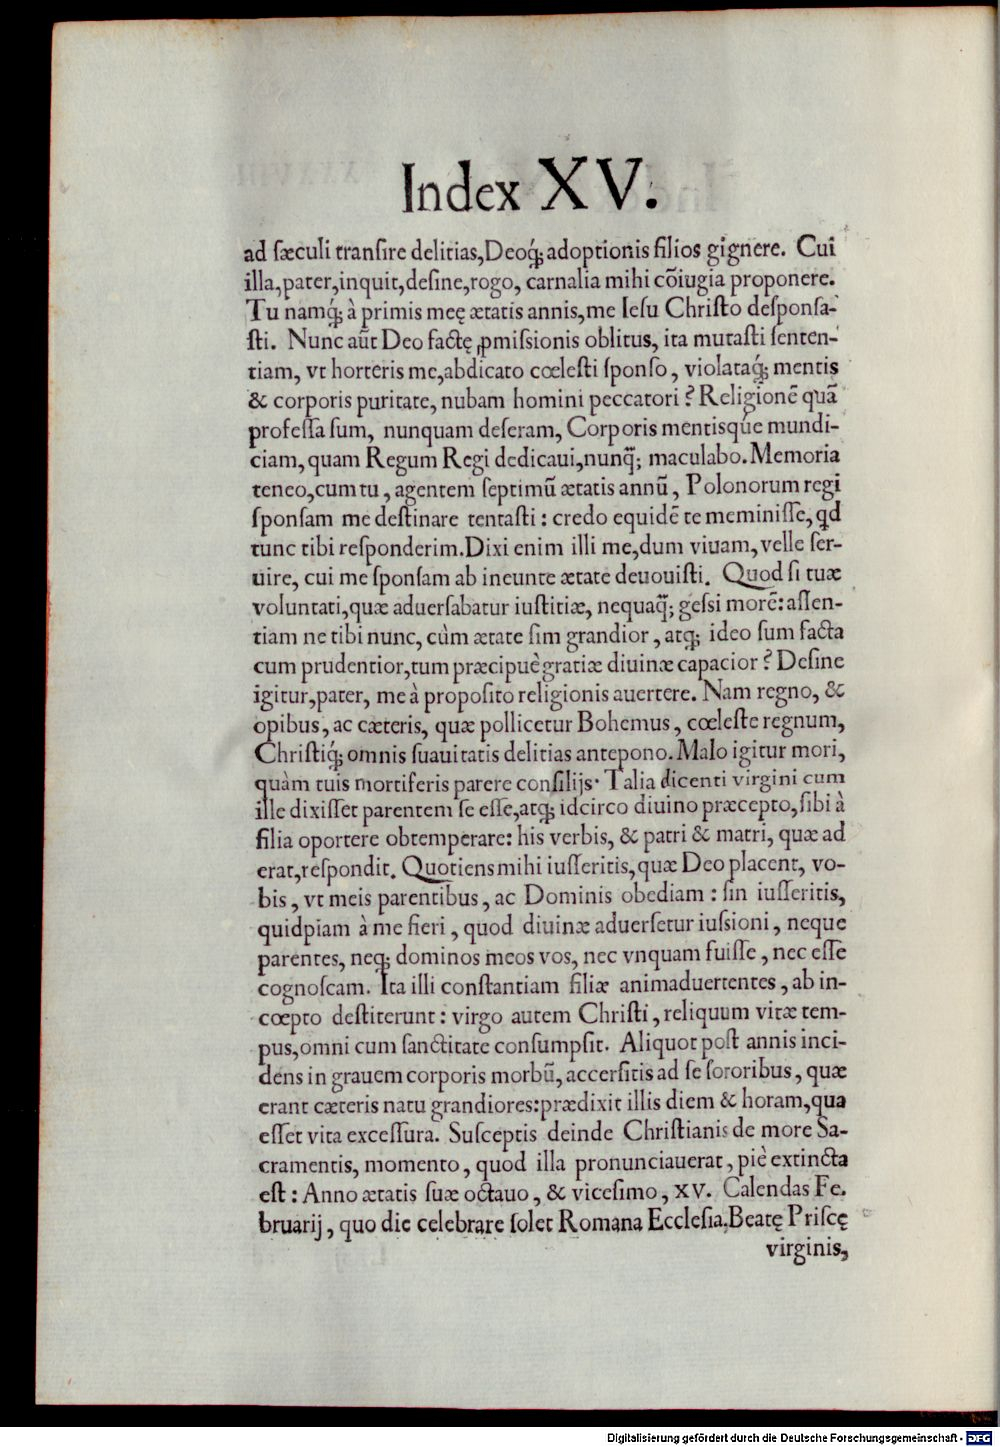 Index XV.
ad sæculi transire delitias, Deoq́; adoptionis filios gignere. Cui
illa, pater, inquit, desine, rogo, carnalia mihi cõiugia proponere.
Tu namq́; à primis meę ætatis annis, me Iesu Christo desponsa-
sti. Nunc aũt Deo factę ꝓmissionis oblitus, ita mutasti senten-
tiam, vt horteris me, abdicato cœlesti sponso, violataq́; mentis
& corporis puritate, nubam homini peccatori? Religionẽ quã
professa sum, nunquam deseram, Corporis mentisq́ue mundi-
ciam, quam Regum Regi dedicaui, nunq̃; maculabo. Memoria
teneo, cum tu, agentem septimũ ætatis annũ, Polonorum regi
sponsam me destinare tentasti: credo equidẽ te meminisse, qd
tunc tibi responderim. Dixi enim illi me, dum viuam, velle ser-
uire, cui me sponsam ab ineunte ætate deuouisti. Quod si tuæ
voluntati, quæ aduersabatur iustitiæ, nequaq̃; gessi morẽ: assen-
tiam ne tibi nunc, cùm ætate sim grandior, atq; ideo sum facta
cum prudentior, tum præcipuè gratiæ diuinæ capacior? Desine
igitur, pater, me à proposito religionis auertere. Nam regno, &
opibus, ac cæteris, quæ pollicetur Bohemus, cœleste regnum,
Christiq́; omnis suauitatis delitias antepono. Malo igitur mori,
quàm tuis mortiferis parere consilijs. Talia dicenti virgini cum
ille dixisset parentem se esse, atq; idcirco diuino præcepto, sibi à
filia oportere obtemperare: his verbis, & patri & matri, quæ ad
erat, respondit. Quotiens mihi iusseritis, quæ Deo placent, vo-
bis, vt meis parentibus, ac Dominis obediam: sin iusseritis,
quidpiam à me fieri, quod diuinæ aduersetur iussioni, neque
parentes, neq; dominos meos vos, nec vnquam fuisse, nec esse
cognoscam. Ita illi constantiam filiæ animaduertentes, ab in-
cœpto destiterunt: virgo autem Christi, reliquum vitæ tem-
pus, omni cum sanctitate consumpsit. Aliquot post annis inci-
dens in grauem corporis morbũ, accersitis ad se sororibus, quæ
erant cæteris natu grandiores: prædixit illis diem & horam, qua
esset vita excessura. Susceptis deinde Christianis de more Sa-
cramentis, momento, quod illa pronunciauerat, piè extincta
est: Anno ætatis suæ octauo, & vicesimo, XV. Calendas Fe.
bruarij, quo die celebrare solet Romana Ecclesia. Beatę Priscę
virginis,
Digitalisierung gefördert durch die Deutsche Forschungsgemeinschaft - DFG